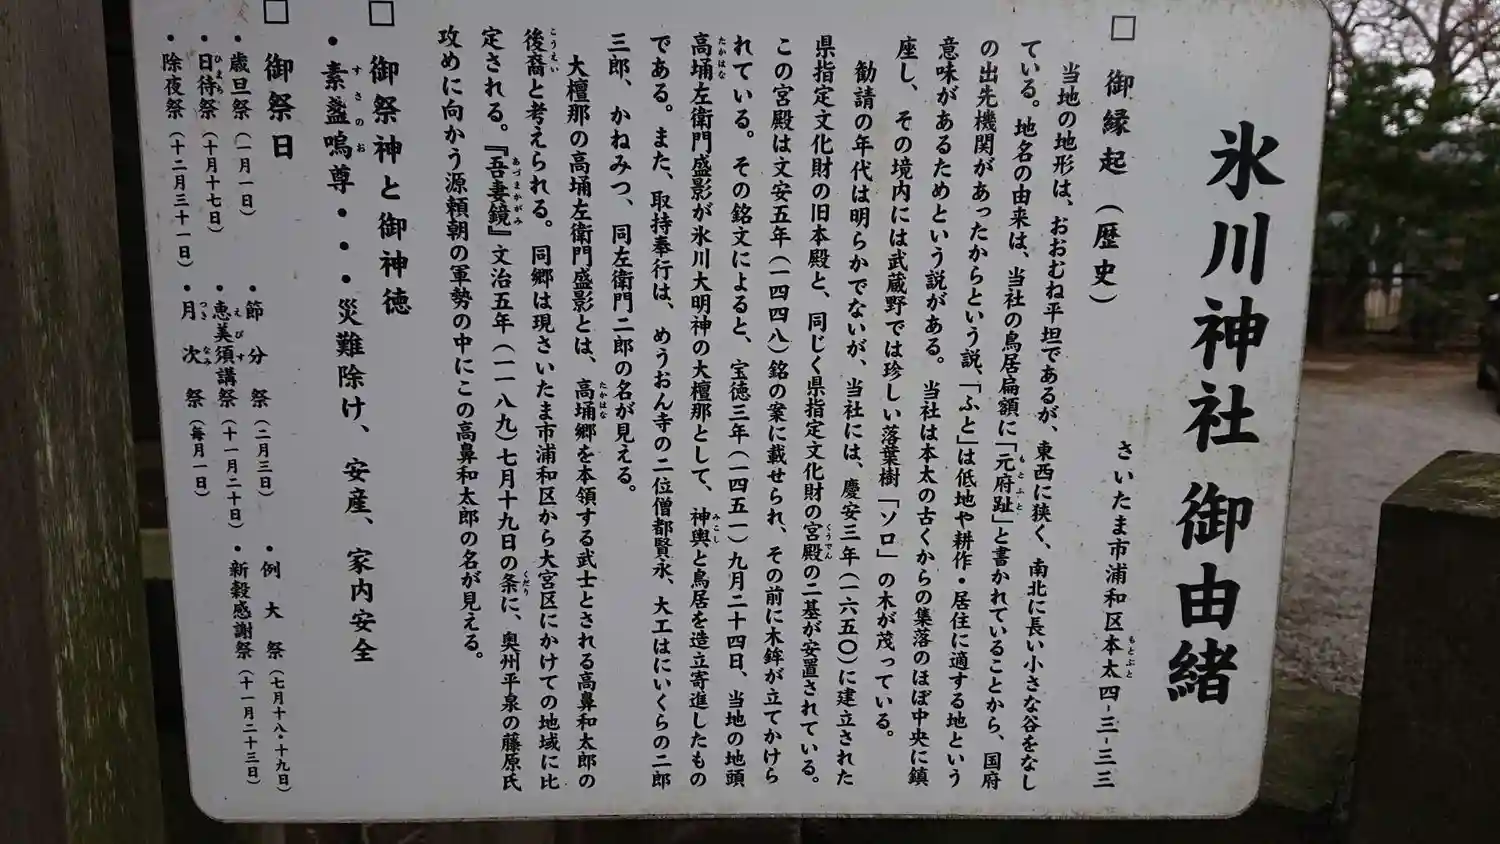 氷川神社 御由緒
さいたま市浦和区本太四-三-三三
□ 御縁起（歴史）
当地の地形は、おおむね平坦であるが、東西に狭く、南北に長い小さな谷をなし
ている。地名の由来は、当社の鳥居扁額に「元府趾」と書かれていることから、国府
の出先機関があったからという説、「ふと」は低地や耕作・居住に適する地という
意味があるためという説がある。当社は本太の古くからの集落のほぼ中央に鎮
座し、その境内には武蔵野では珍しい落葉樹「ソロ」の木が茂っている。
勧請の年代は明らかでないが、当社には、慶安三年（一六五〇）に建立された
県指定文化財の旧本殿と、同じく県指定文化財の宮殿の二基が安置されている。
この宮殿は文安五年（一四四八）銘の案に載せられ、その前に木鉾が立てかけら
れている。その銘文によると、宝徳三年（一四五一）九月二十四日、当地の地頭
高埇左衛門盛影が氷川大明神の大檀那として、神輿と鳥居を造立寄進したもの
である。また、取持奉行は、めうおん寺の二位僧都賢永、大工はにいくらの二郎
三郎、かねみつ、同左衛門二郎の名が見える。
大檀那の高埇左衛門盛影とは、高埇郷を本領する武士とされる高鼻和太郎の
後裔と考えられる。同郷は現さいたま市浦和区から大宮区にかけての地域に比
定される。『吾妻鏡』文治五年（一一八九）七月十九日の条に、奥州平泉の藤原氏
攻めに向かう源頼朝の軍勢の中にこの高鼻和太郎の名が見える。
□ 御祭神と御神徳
・素盞嗚尊・・・災難除け、安産、家内安全
□ 御祭日
・歳旦祭（一月一日）　・節分祭（二月三日）　・例大祭（七月十八・十九日）
・日待祭（十月十七日）　・恵美須講祭（十一月二十日）　・新穀感謝祭（十一月二十三日）
・除夜祭（十二月三十一日）　・月次祭（毎月一日）